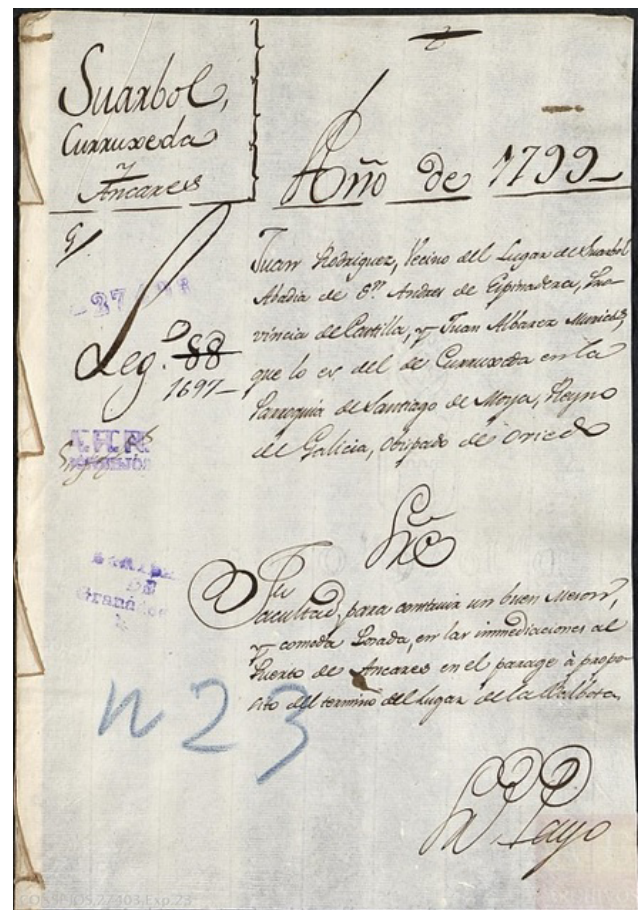 Suarbol,
Curruxeda
y
Ancares
Año de 1799
Leg.º 88
1697
Juan Rodriguez, Vecino del Lugar de Suarbol
Abadia de Sn. Andres de Espinadera, Pro-
vincia de Castilla, y Juan Albarez Muricas,
que lo es del de Curruxeda en la
Parroquia de Santiago de Moya, Reyno
de Galicia, Obispado de Oviedo
Sre
Facultad, para construir un buen Meson,
y comoda Posada, en las immediaciones al
Puerto de Ancares en el parage à propo-
sito del termino del Lugar de la Balbota
Payo
A.H.N.
CONSEJOS
DE
Granados
n 23
CONSEJOS,27103,Exp.23